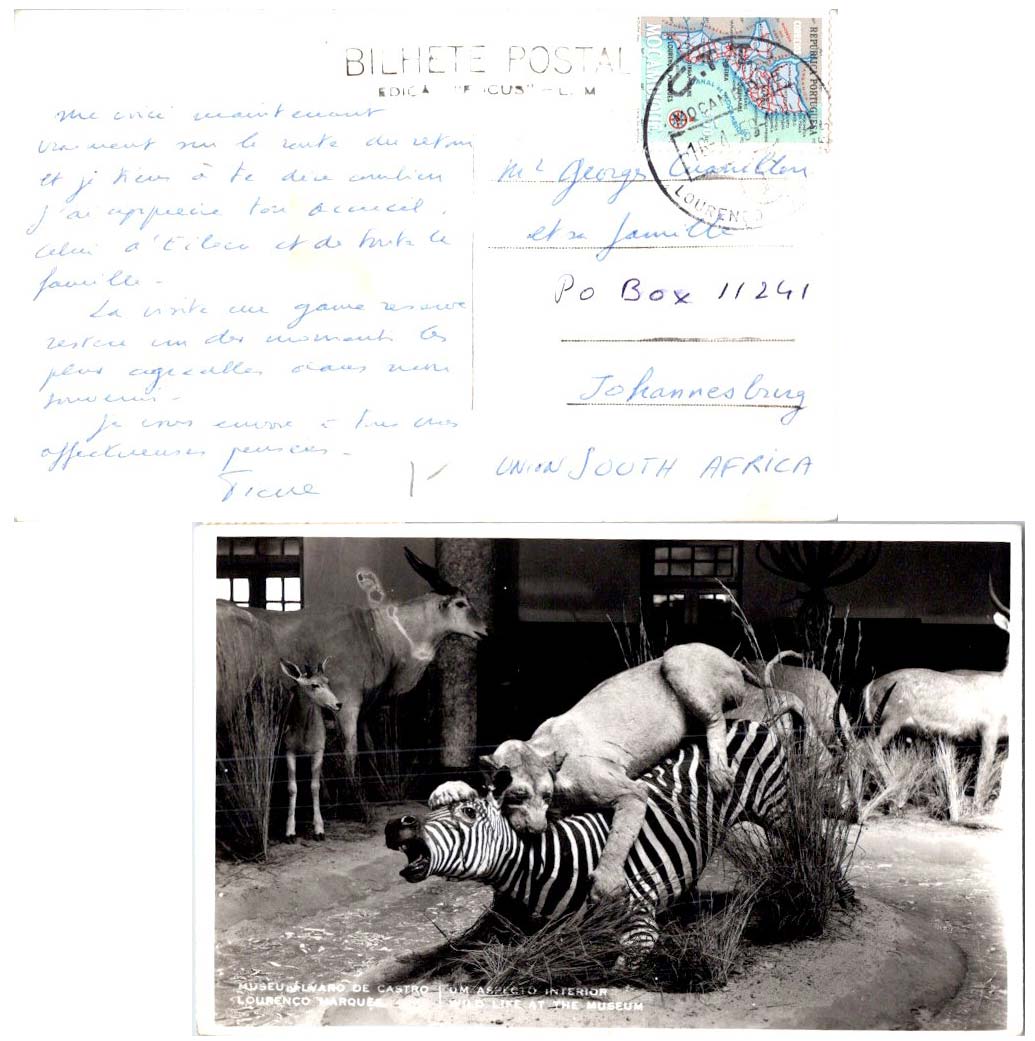 BILHETE POSTAL
EDIÇÃ "FOCUS" - L. M
REPUBLICA PORTUGUESA
MOÇAMBIQUE
C.T.T.
MOÇAM
LOURENÇO
me voici maintenant
vraiment sur la route du retour
et je tiens à te dire combien
j'ai apprécié ton accueil,
celui d'Eileen et de toute la
famille.
La visite au game reserve
restera un des moments les
plus agréables dans mon
souvenir.
Je vous envoie à tous mes
affectueuses pensées.
Mr Georges
et sa famille
PO Box 11241
Johannesburg
UNION SOUTH AFRICA
MUSEU ALVARO DE CASTRO UM ASPECTO INTERIOR
LOURENÇO MARQUES WILD LIFE AT THE MUSEUM